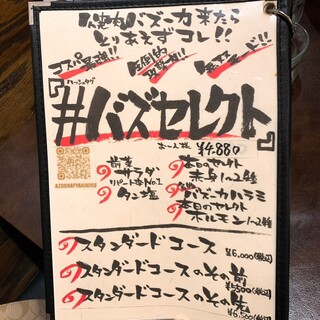 焼肉バズーカ来たら
とりあえずコレ!!
コスパ最強!!
圧倒的
ハッシュタグ
『#バズセレクト』
お一人様 ¥4,880
前菜
サラダ
リピート率No.1
タン塩
本日のセレクト
赤身1〜2種
バズーカハラミ
本日のセレクト
ホルモン1〜2種
スタンダードコース
¥6,000(税込)
スタンダードコースのその前
¥5,500(税込)
スタンダードコースのその先
¥6,500(税込)